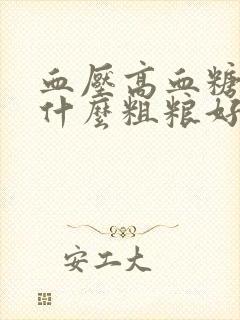 血壓高血糖
什麼粗粮好
安工大